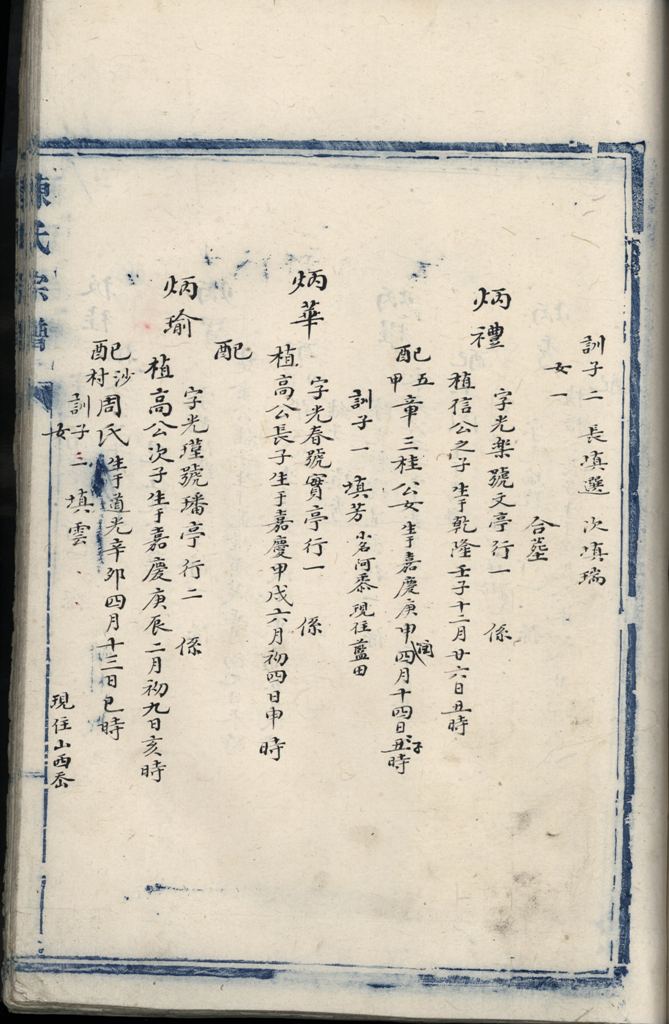 訓子二 長填選 次填瑞
女一
合塋
炳禮
字光樂號文亭行一 係
植信公之子生于乾隆壬子十二月廿六日丑時
配五甲章三桂公女生于嘉慶庚申閏四月十四日子時
訓子一 填芳 小名阿泰 現住藍田
炳華
字光春號實亭行一 係
植高公長子生于嘉慶甲戌六月初四日申時
配
炳瑜
字光瑾號璠亭行二 係
植高公次子生于嘉慶庚辰二月初九日亥時
配沙村周氏生于道光辛卯四月十三日巳時
訓子二 填雲
女
現住山西岙
陳氏宗譜